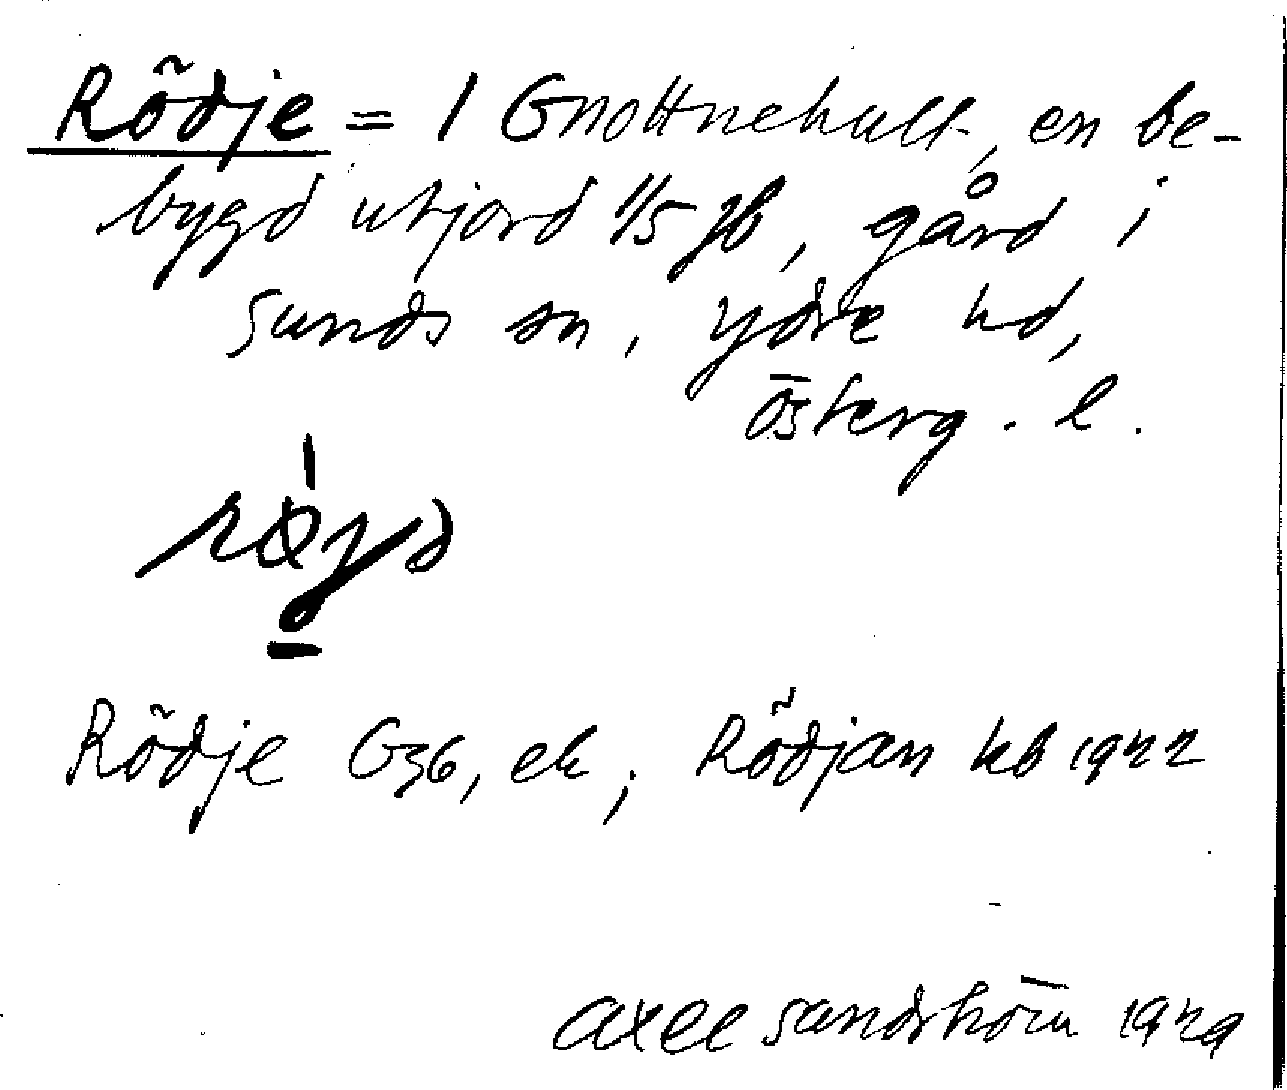 Rödje = / Gnottnehult, en be-
bygd utjord 1/5 jb, gård i
Sunds sn, Ydre hd,
Österg. l.
Rödje G36, ek; Rödjan kb 1922
Axel Sandström 1929